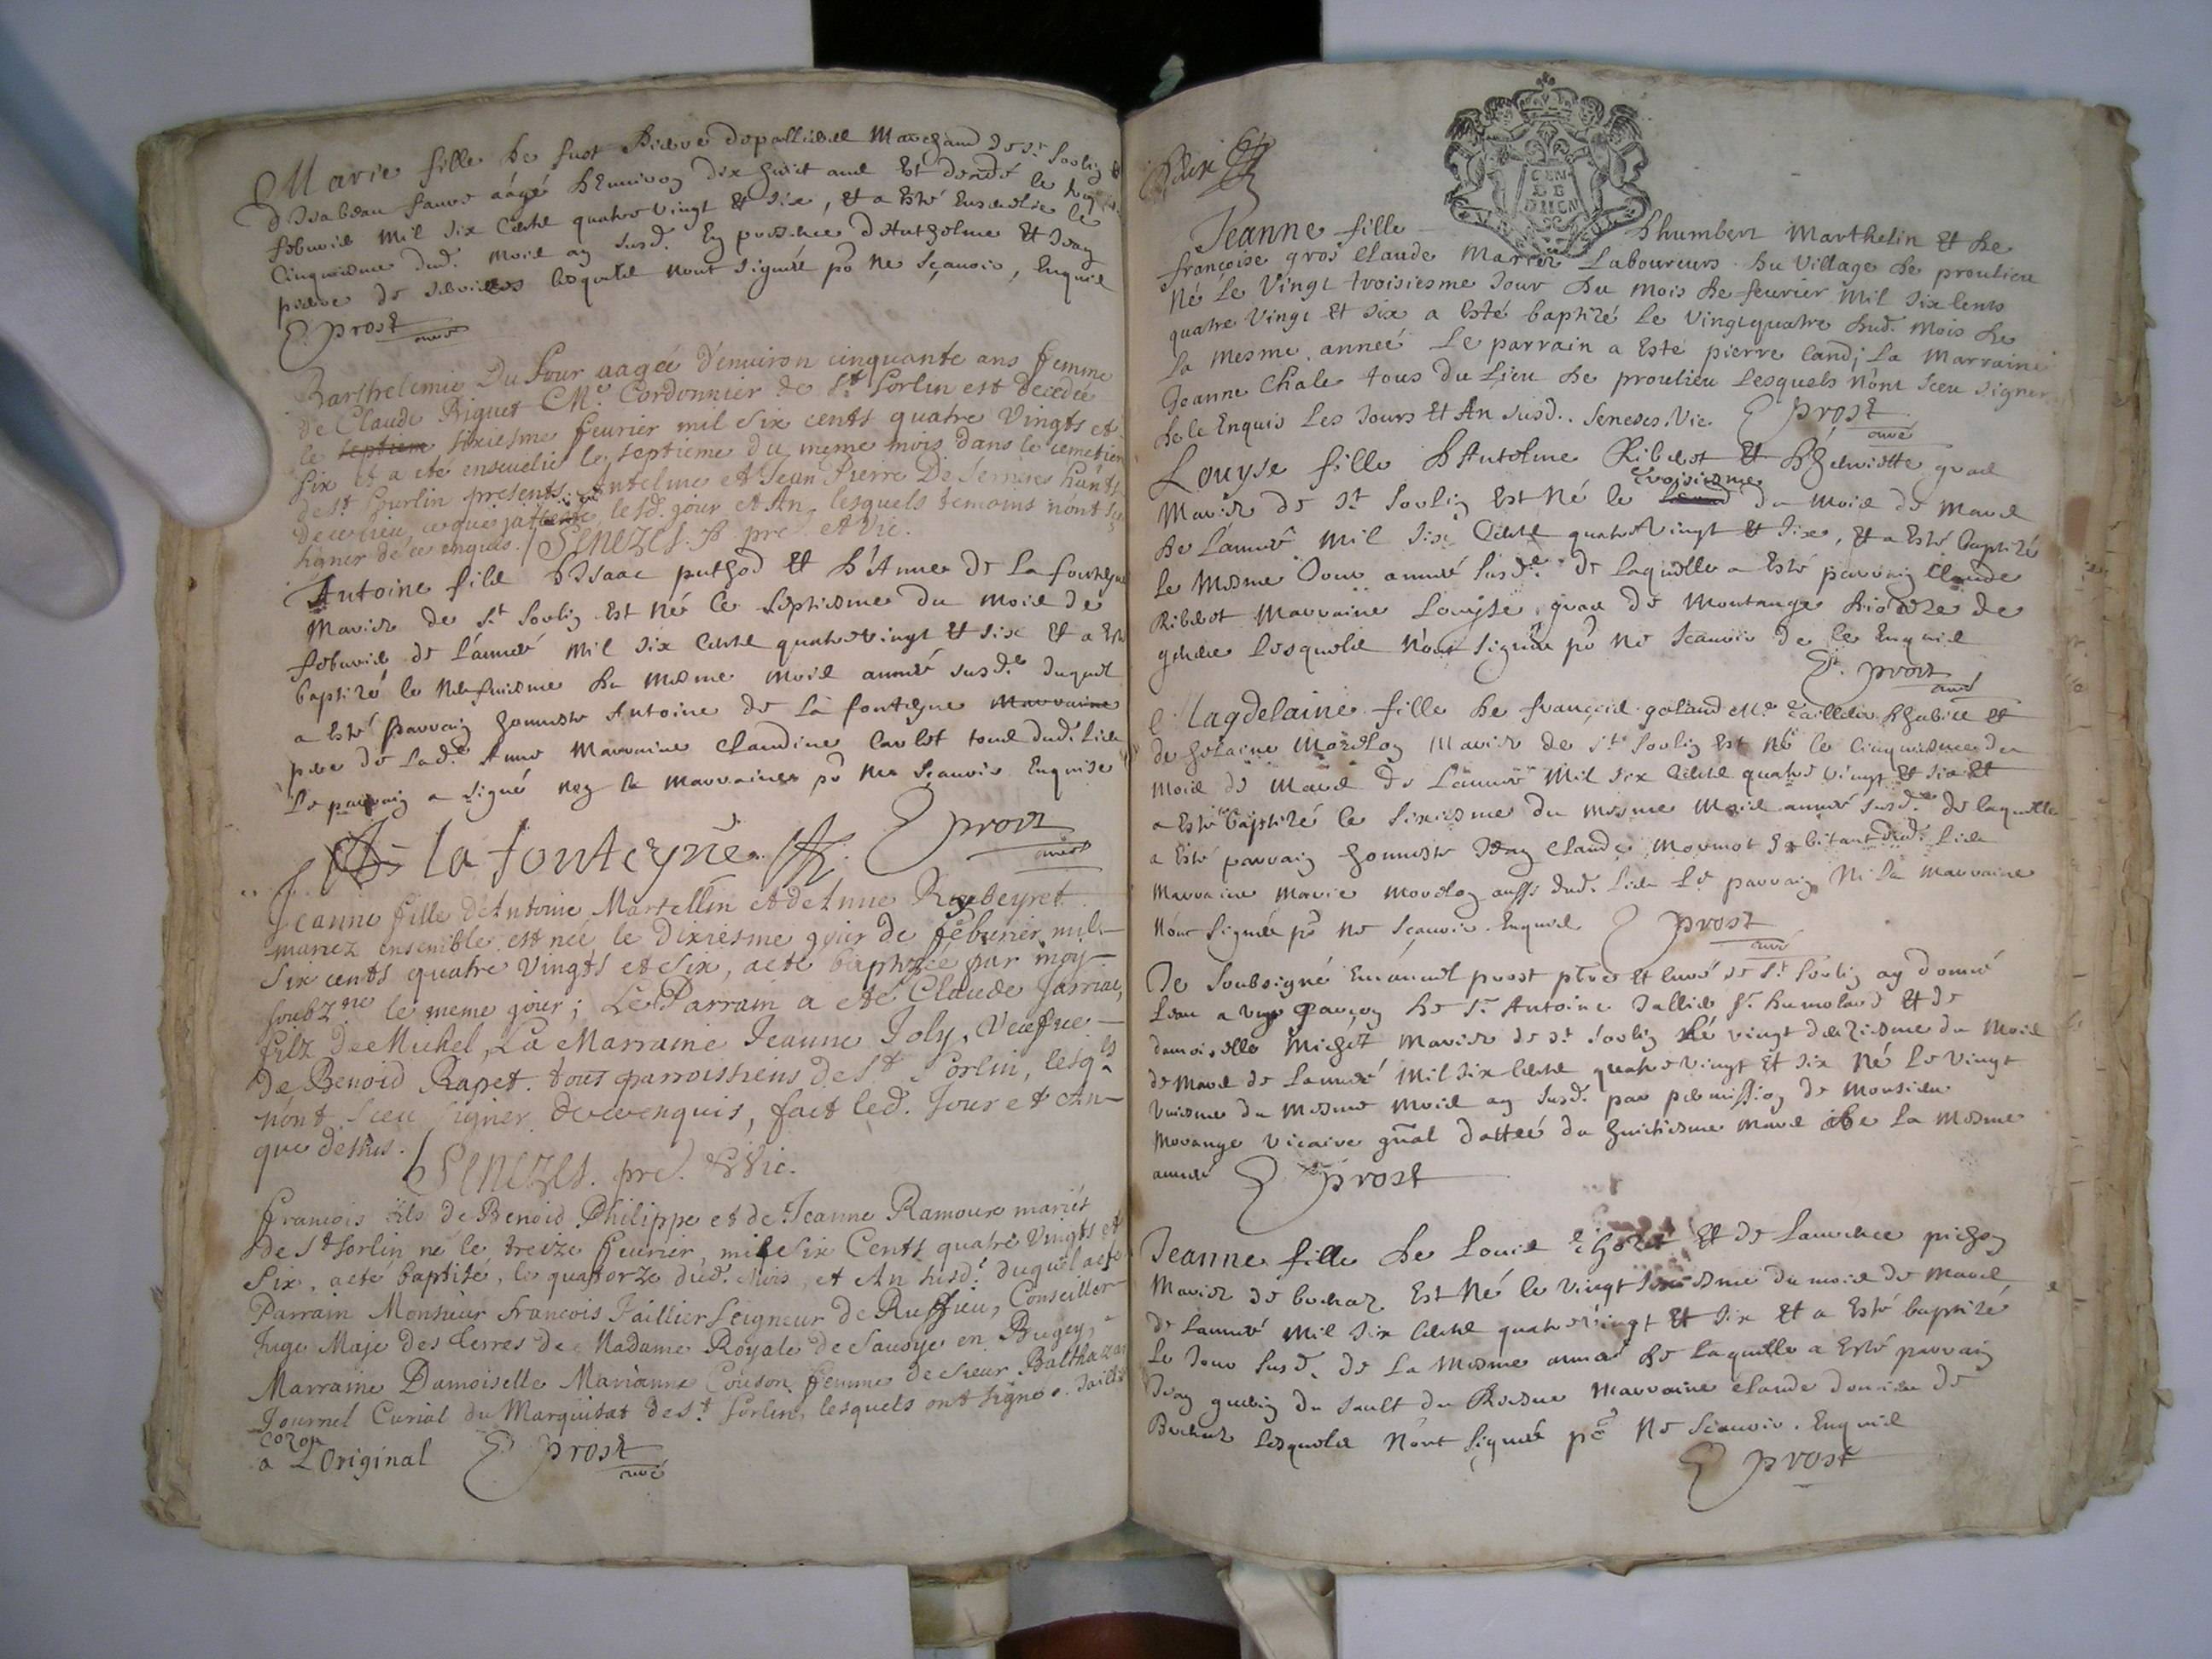 Marie fille de fust Pierre depallieres Marchand de St Sorlin &
d'Isabeau faure aagé d'Enuiron dix huict ans Est decedé le
februier Mil Six Cents quatre vingt Et Six, Et a Esté Enseuelie le
Cinquiesme dud. Mois an susd. En presence d'Anthelme Et Jean
pierre de lesquels nont signés po ne sçauoir, Enquis
E prost curé
Barthelemie Du Four aagée d'enuiron cinquante ans femme
de Claude Riguet Me. Cordonnier de St Sorlin est decedée
le septiem sixiesme feurier mil six cents quatre vingts et
six et a eté enseuelie le septieme du meme mois dans le cemetiere
de St Surlin presents Antelme et Jean Pierre De
de ce lieu, ce que j'atteste lesd. jour et An lesquels temoins nont
signer de ce enquis. / Senezes. pre et Vic.
Antoine fils d'Isaac puthod Et d'Anne de la fonteyne
Mariez de St Sorlin Est Né le septiesme du mois de
februier de l'année Mil Six Cents quatre vingt Et Six Et a Esté
baptizé le Neufuiesme du mesme mois année susd. duquel
a Esté parrain honneste Antoine de la fonteyne Marraine
pere de lad. Anne Marraine Claudine Carlet tous dud. lieu
Le parrain a signé non la marraine po ne sçauoir Enquise
De la fonteyne E prost curé
Jeanne fille d'Antoine Martellin et de Anne Reybeyret
mariez ensemble est née le Dixiesme jour de Feburier mil
Six cents quatre vingts et Six, a eté baptizée par moy
soubzné le meme jour; Le Parrain a eté Claude Jarriat,
filz de Michel, La Marraine Jeanne Joly, Veufue
De Benoid Rapet. tous parroissiens de St Sorlin, lesqls
nont sceu signer de ce enquis, fait led. Jour et An
que dessus. / Senezes. pre. & Vic.
Francois fils de Benoid Philippe et de Jeanne Ramoux mariés
de St Sorlin né le treize feurier, mil Six Cents quatre Vingts et
Six, a eté baptisé, le quatorze dud. Mois, et An susd. duquel a eté
Parrain Monsieur Francois Taillier Seigneur de Ruffieu, Conseiller
Juge Maje des Terres de Madame Royale de Sauoye en Bugey,
Marraine Damoiselle Marianne Couson femme de Sieur Balthazar
Journel Curial du Marquisat de St Sorlin, lesquels ont signé
a L'Original E prost curé
Deux
GEN DE DIION
Jeanne fille d'humbert Marthelin Et de
françoise gros Claude Mariez Laboureurs du Village de proulieu
Né Le Vingt troisiesme Jour du Mois de feurier Mil Six Cents
quatre Vingt Et Six a Esté baptizé Le Vingt quatre dud. Mois de
la Mesme année Le parrain a Esté pierre Candi La Marraine
Jeanne Chale tous du Lieu de proulieu Lesquels n'ont sceu signer
de ce Enquis Les Jours Et An susd. Senezes. Vic. E prost curé
Louyse fille d'Antelme Ribelot Et d'
Mariez de St Sorlin Est Né le troisiesme du mois de Mars
de l'année Mil Six Cents quatre Vingt Et Six, Et a Esté baptizé
le Mesme Jour année susd. de laquelle a Esté parrain Claude
Ribelot Marraine Louyse de Montange
lesquels n'ont signés po ne sçauoir de ce Enquis
E prost curé
Magdelaine fille de françois goland Me tailleur d'habits Et
de Mariez de St Sorlin Est Né le Cinquiesme du
mois de Mars de l'année Mil Six Cents quatre vingt Et Six Et
a Esté baptizé le Sixiesme du mesme Mois année susd. de laquelle
a Esté parrain honneste Jean Claude Mormot habitant dud. lieu
Marraine Marie aussi dud. lieu Le parrain Ni la Marraine
N'ont signés po ne sçauoir. Enquis E prost curé
Je Soubsigné Emanuel prost ptre Et Curé de St Sorlin ay donné
l'eau a vng garçon de Sr Antoine Sr Et de
damoiselle Mariez de St Sorlin Né vingt deuziesme du Mois
de Mars de l'année Mil Six Cents quatre vingt Et Six Né Le Vingt
vniesme du mesme mois an susd. par permission de Monsieur
Morange Vicaire gnal dattée du huictiesme Mars de la Mesme
année E prost
Jeanne fille de Louis Et de Laurence pichon
Mariez de Est Né le Vingt du mois de Mars
de l'année Mil Six Cents quatre vingt Et Six Et a Esté baptizé
le Jour susd. de la Mesme année de laquelle a Esté parrain
Jean du Sault du Rosne Marraine Claude de
lesquels N'ont signés po Ne Sçauoir. Enquis
E prost